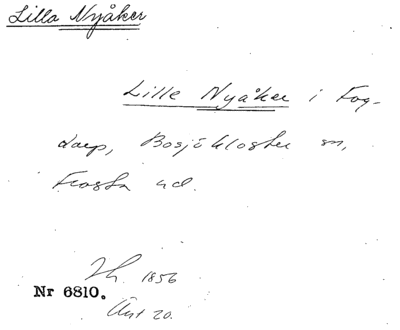 Lilla Nyåker
Lille Nyåker i Fog-
darp, Bosjökloster sn,
Frosta hd.
Jh. 1856
Nr 6810.
Ant 20.